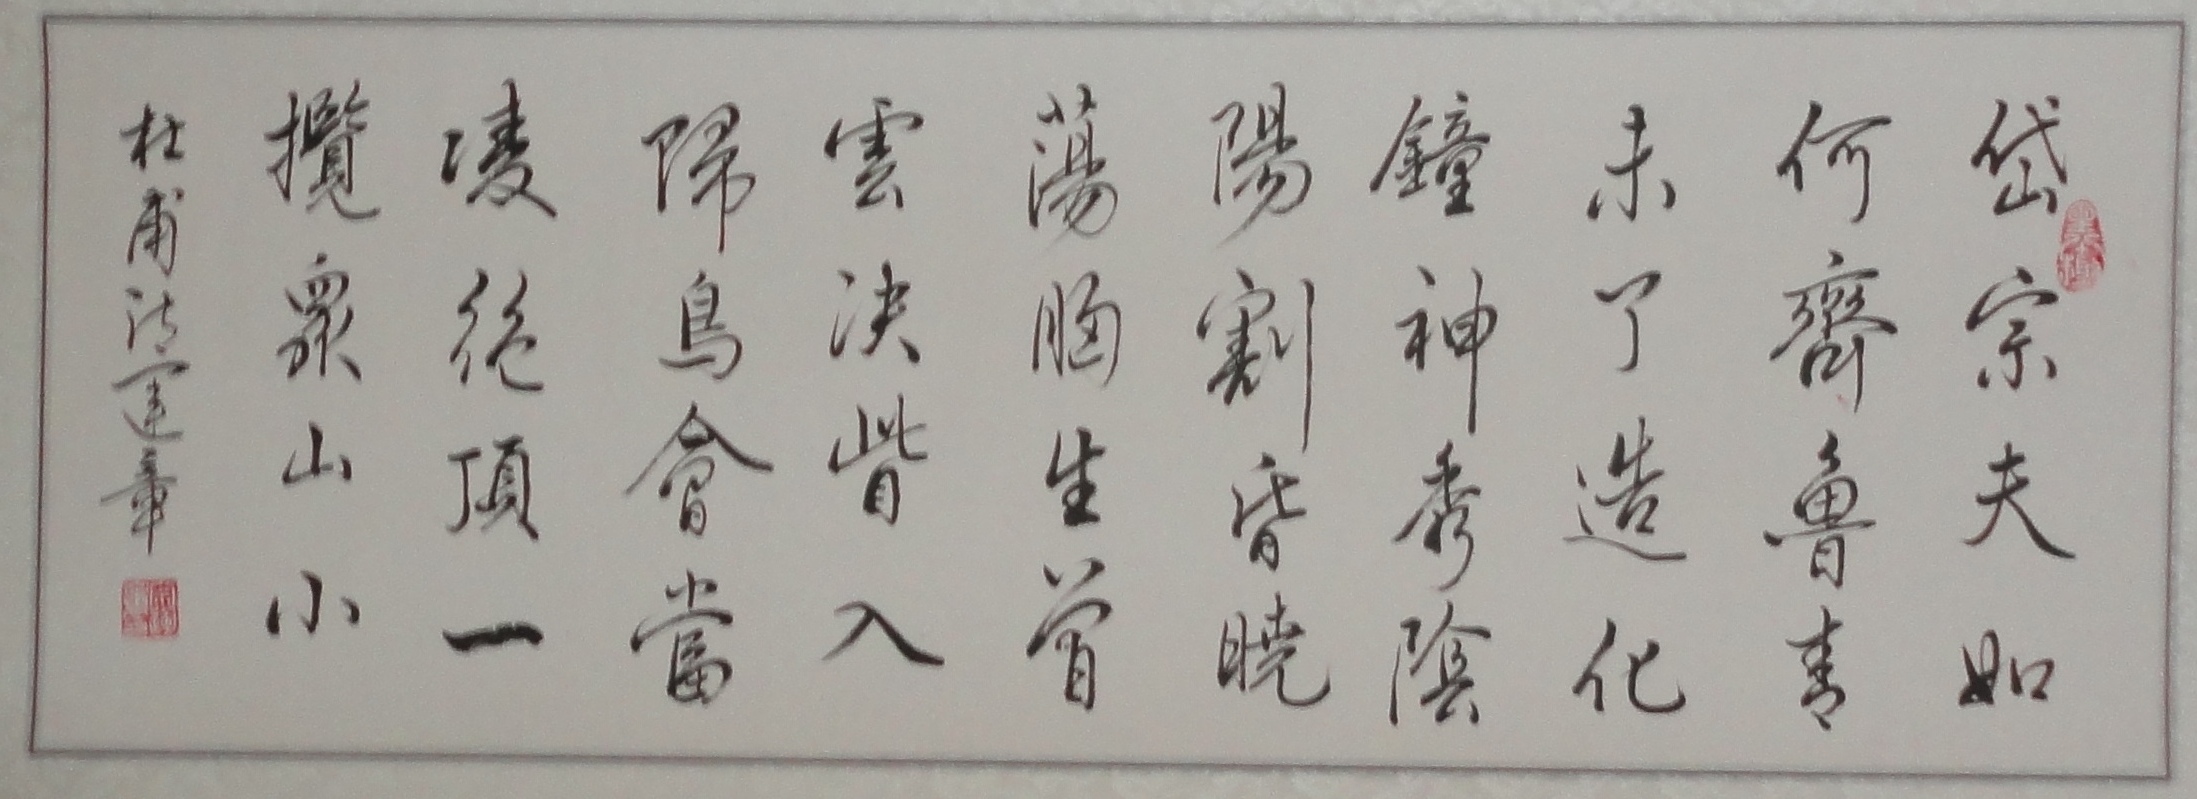 岱宗夫如
何齊魯青
未了造化
鐘神秀陰
陽割昏曉
蕩胸生曾
雲決眥入
歸鳥會當
凌絕頂一
攬眾山小
杜甫詩運章